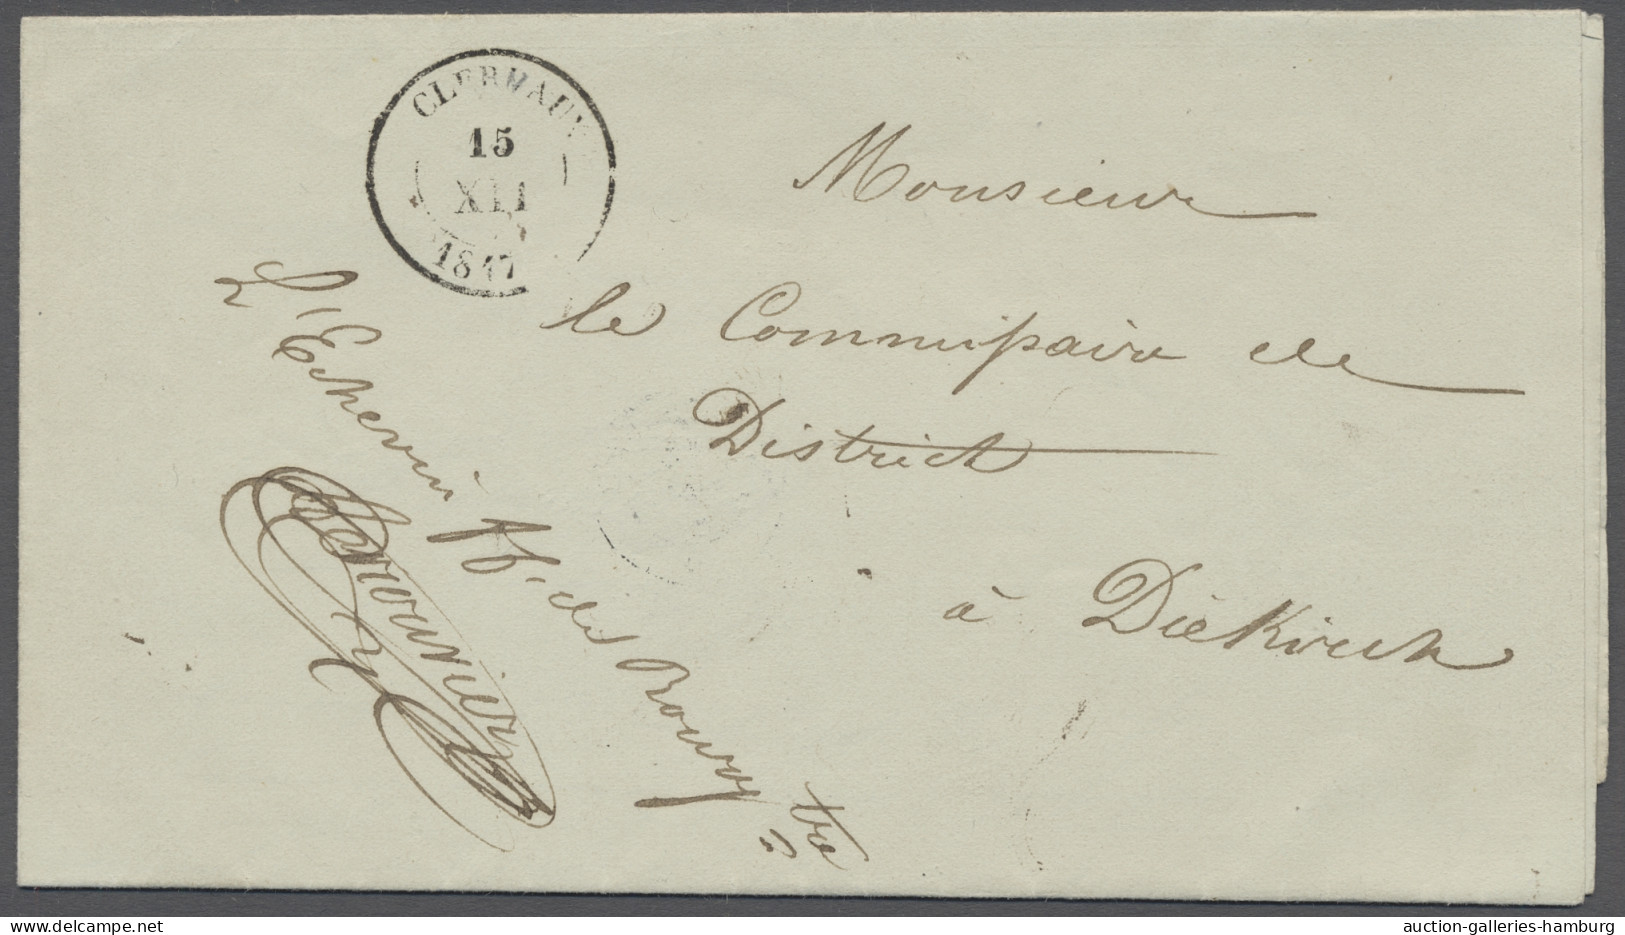 CLERVAUX
15
XII
1847
Monsieur
le Commissaire de
District
à Diekirch
L'Echevin ff. de
auction-galleries-hamburg